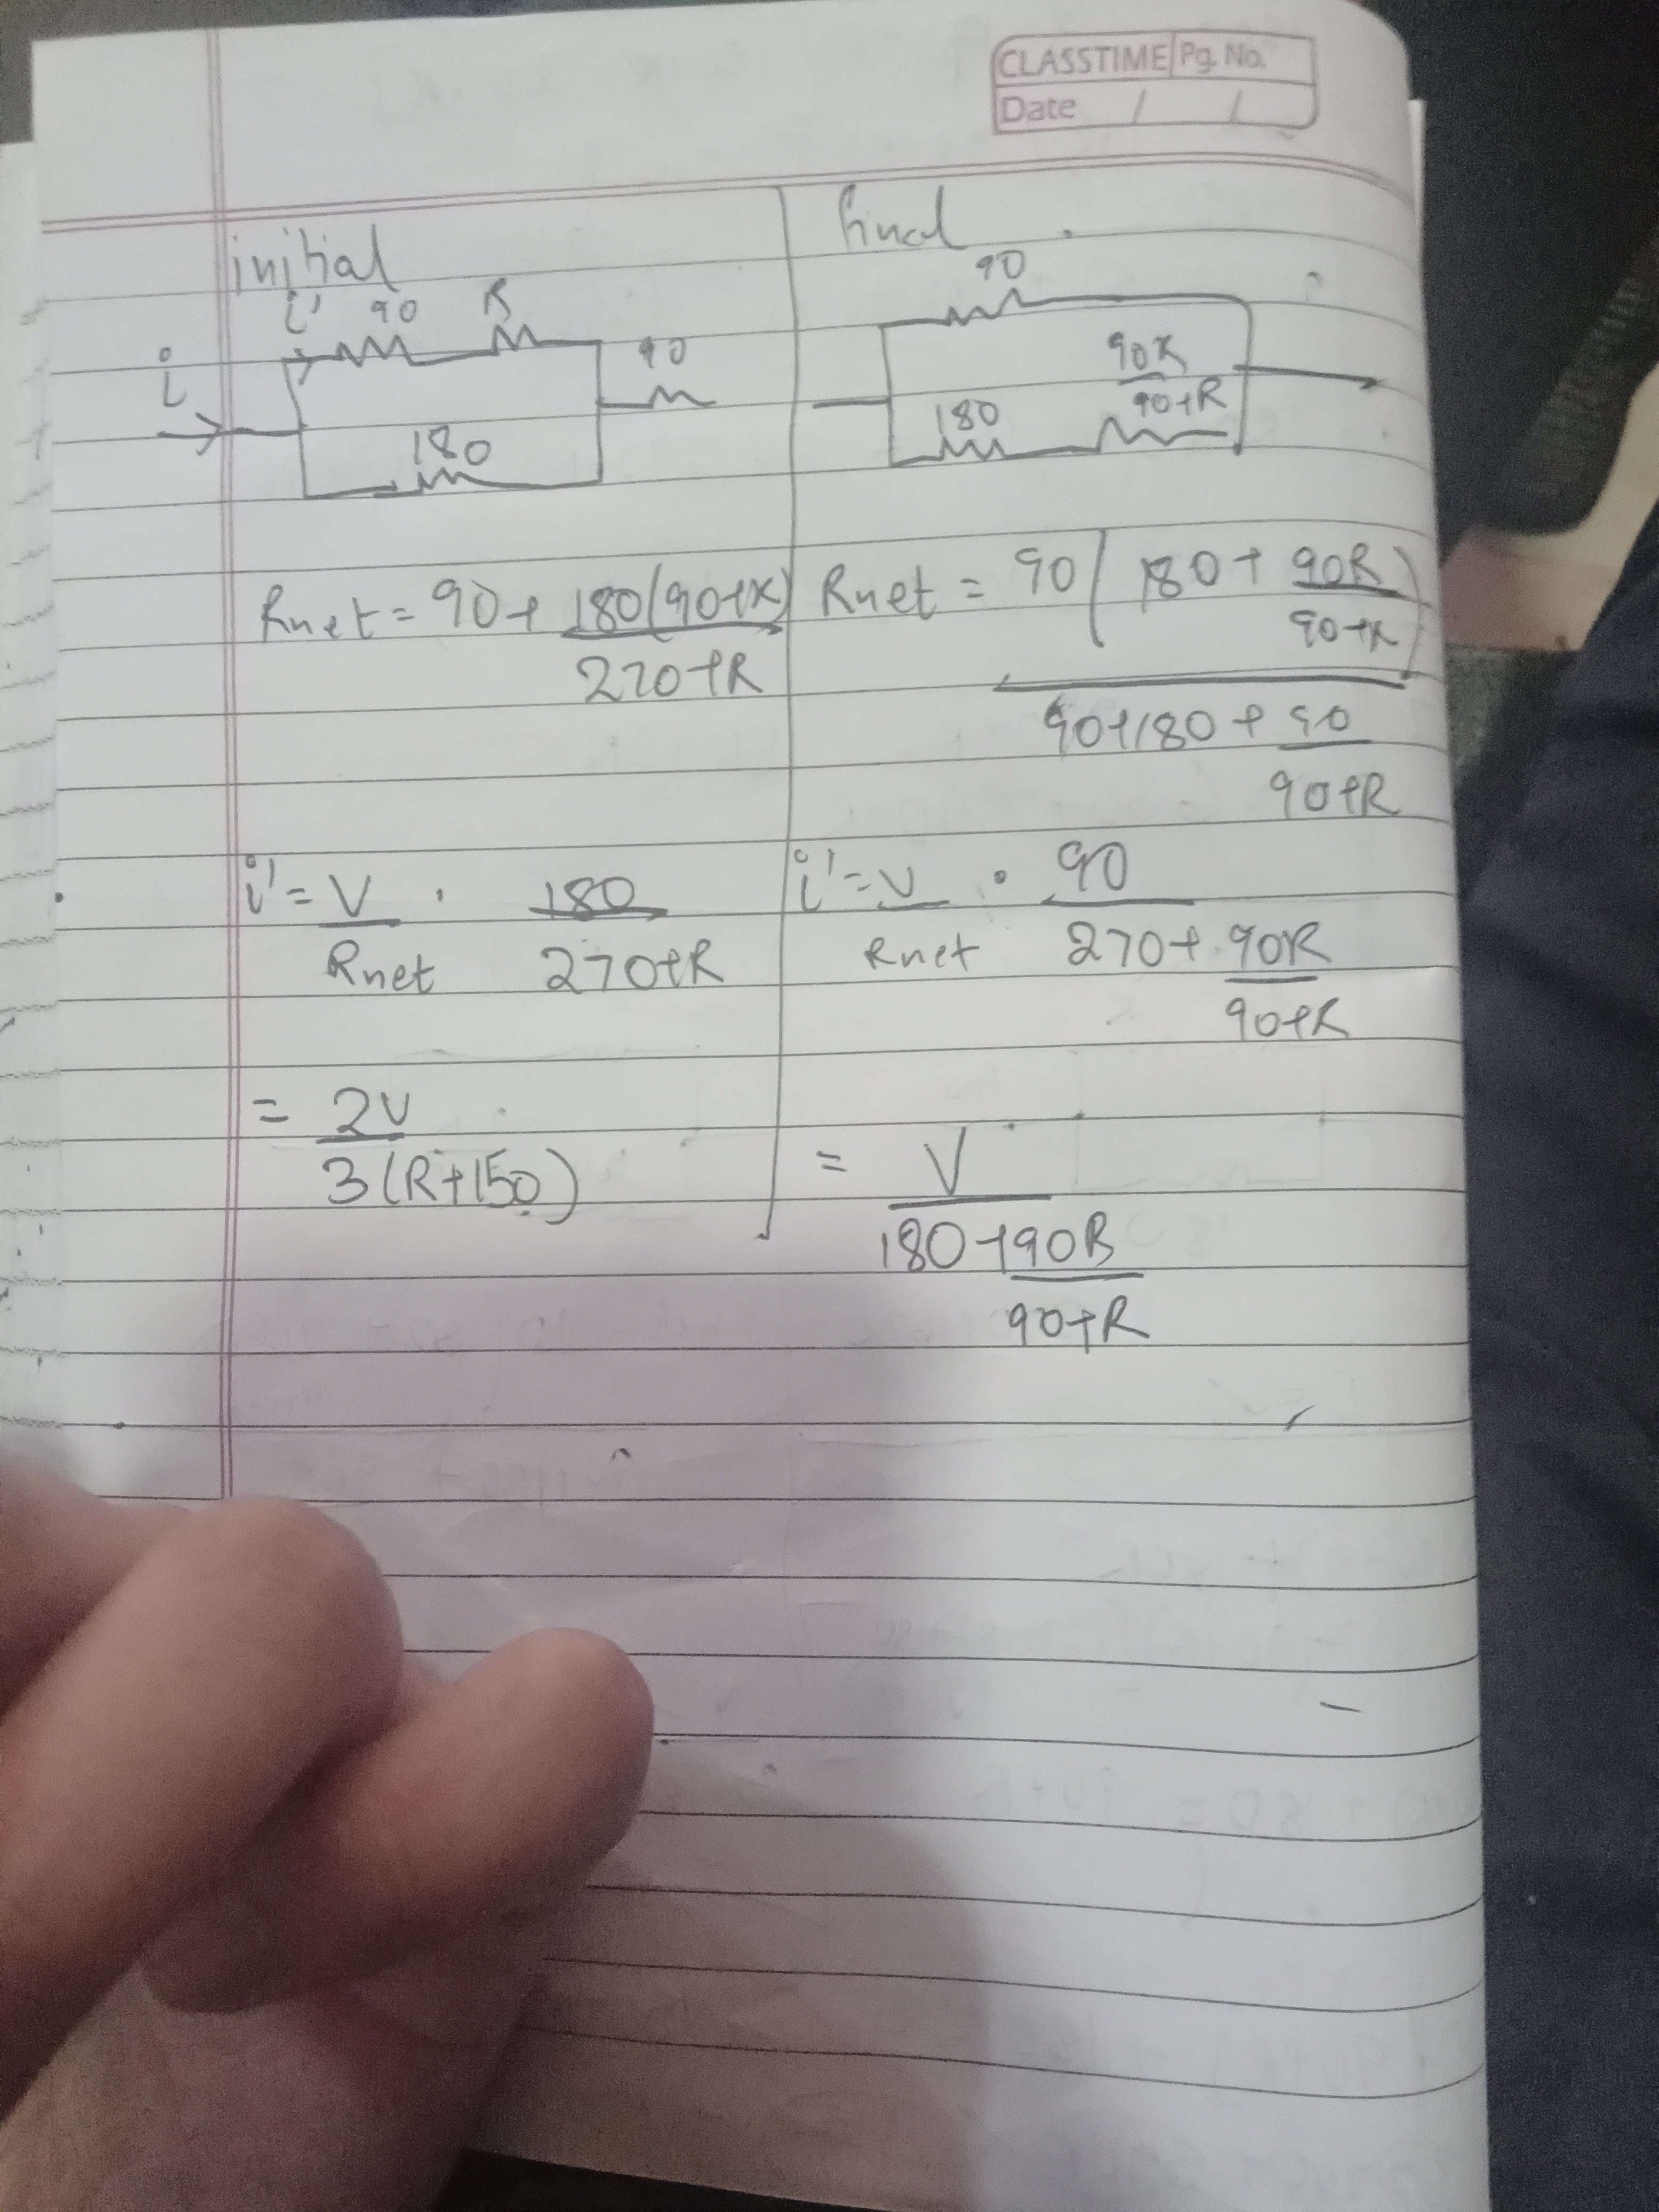 CLASSTIME Pg. No.
Date / /
initial
i' 90 R
i
90
180
Rnet = 90 + 180(90+R)
270+R
i' = V . 180
Rnet 270+R
= 2V
3(R+150)
final
90
90R
90+R
180
Rnet = 90 ( 180 + 90R )
90+R
90+180 + 90
90+R
i' = V . 90
Rnet 270 + 90R
90+R
= V
180+90R
90+R